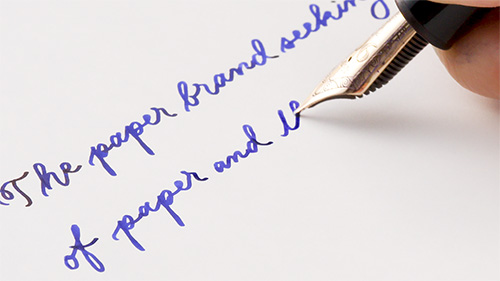 The paper brand seeking
of paper and